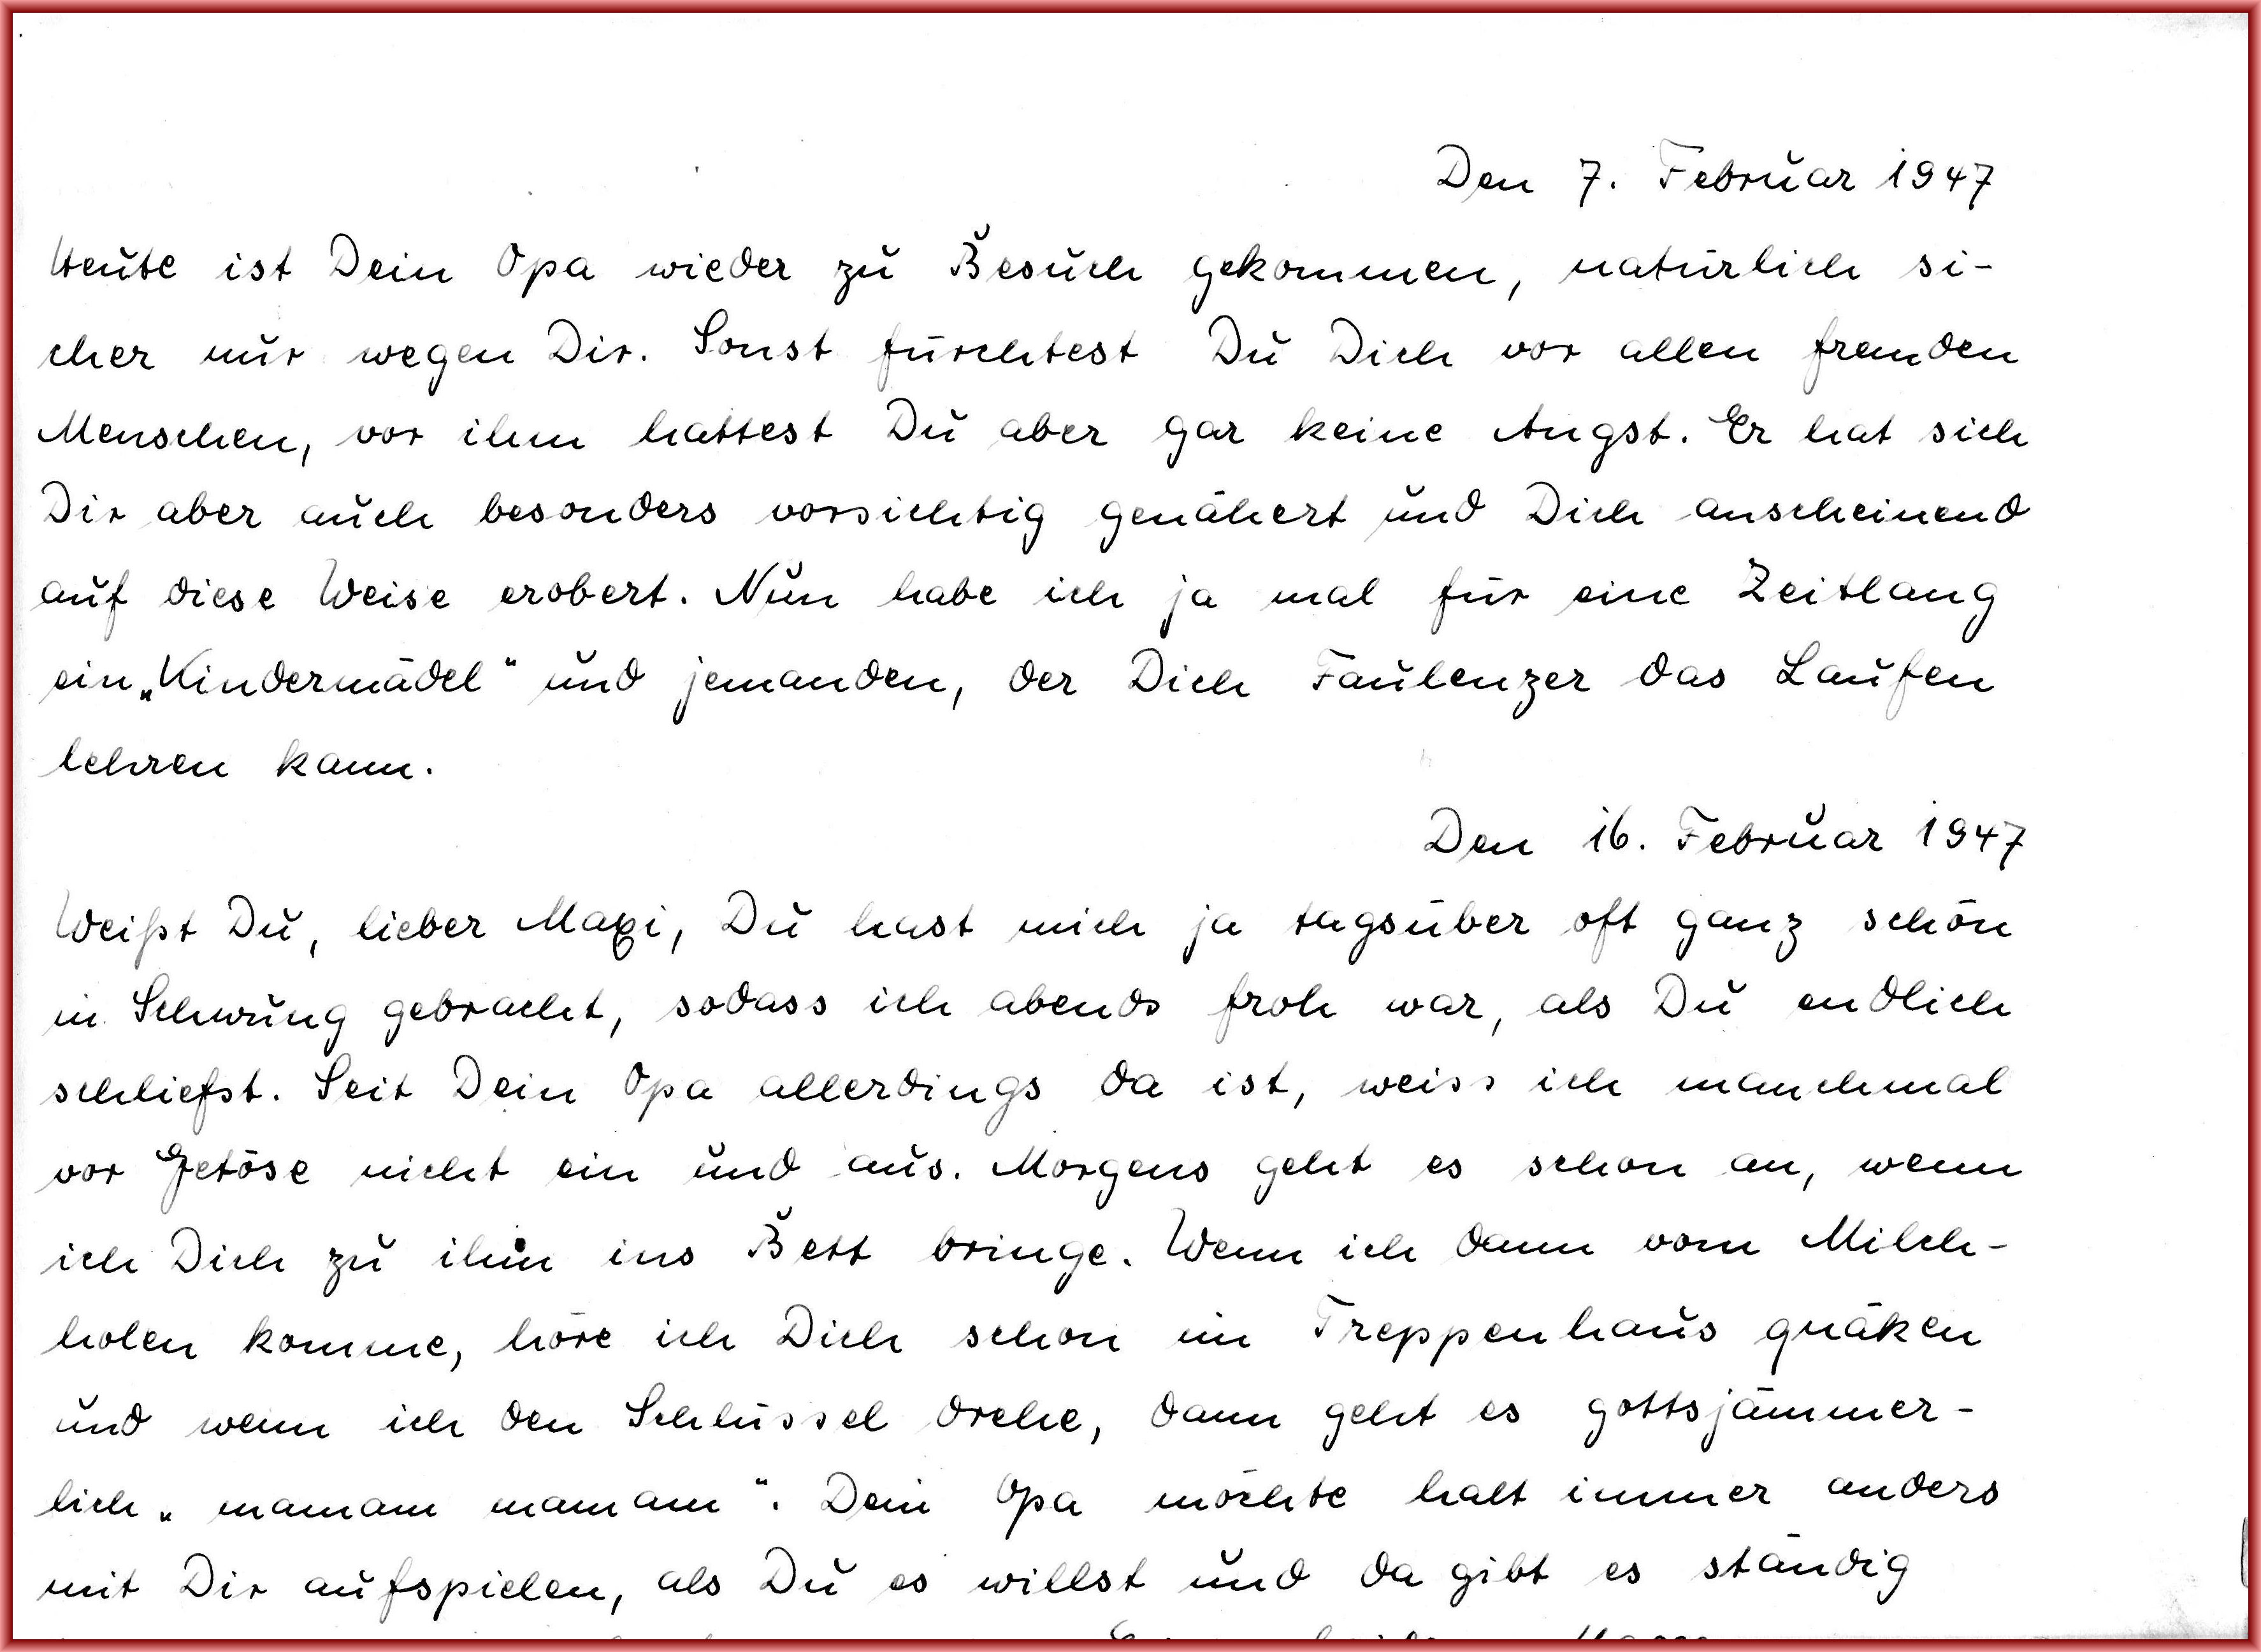 Den 7. Februar 1947
Heute ist Dein Opa wieder zu Besuch gekommen, natürlich si-
cher nur wegen Dir. Sonst fürchtest Du Dich vor allen fremden
Menschen, vor ihm hattest Du aber gar keine Angst. Er hat sich
Dir aber auch besonders vorsichtig genähert und Dich anscheinend
auf diese Weise erobert. Nun habe ich ja mal für eine Zeitlang
ein „Kindermädel" und jemanden, der Dich Faulenzer das Laufen
lehren kann.
Den 16. Februar 1947
Weißt Du, lieber Maxi, Du hast mich ja tagsüber oft ganz schön
in Schwung gebracht, sodass ich abends froh war, als Du endlich
schliefst. Seit Dein Opa allerdings da ist, weiss ich manchmal
vor Getöse nicht ein und aus. Morgens geht es schon an, wenn
ich Dich zu ihm ins Bett bringe. Wenn ich dann vom Milch-
holen komme, höre ich Dich schon im Treppenhaus quäken
und wenn ich den Schlüssel drehe, dann geht es gottsjämmer-
lich „mamam mamam". Dein Opa möchte halt immer anders
mit Dir aufspielen, als Du es willst und da gibt es ständig